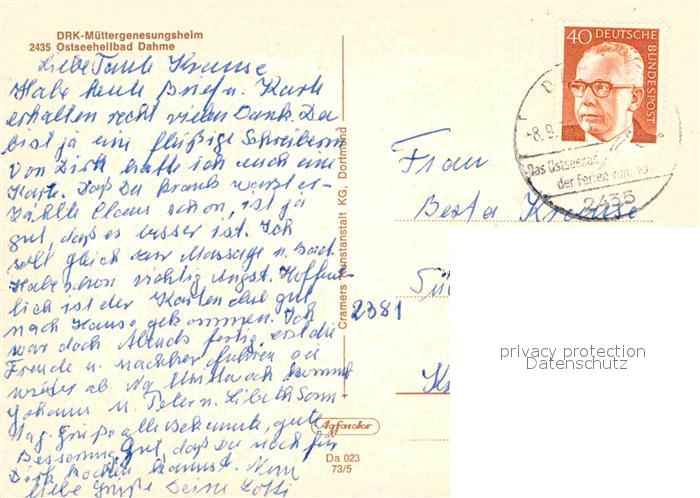 DRK-Müttergenesungsheim
2435 Ostseeheilbad Dahme
Liebe Tante Krause
Habe heute Brief u. Karte
erhalten recht vielen Dank. Du
bist ja eine fleißige Schreiberin
Von Dirk hatte ich auch eine
Karte. Daß Du krank warst er-
zählte Claus schon, ist ja
gut, daß es besser ist. Ich
soll gleich zur Massage u. Bad.
Habe schon richtig Angst. Hoffent-
lich ist der Karten gut
nach Hause gekommen. Ich
war doch Abends fertig, erst die
Freude u. nachher fuhren sie
wieder ab. Na Mittwoch kommt
Johann u. Peter u. Lisbeth Sonn-
tag. Grüße alle Bekannte, gute
Besserung gut, daß Du noch für
Dirk kochen kannst. Nun
liebe Grüße Deine Lotti
Cramers Kunstanstalt KG, Dortmund
Agfacolor
Da 023
73/5
40 DEUTSCHE BUNDESPOST
8.9.
Das Ostseebad
der Ferien
2435
Frau
Berta Krause
2381
privacy protection
Datenschutz